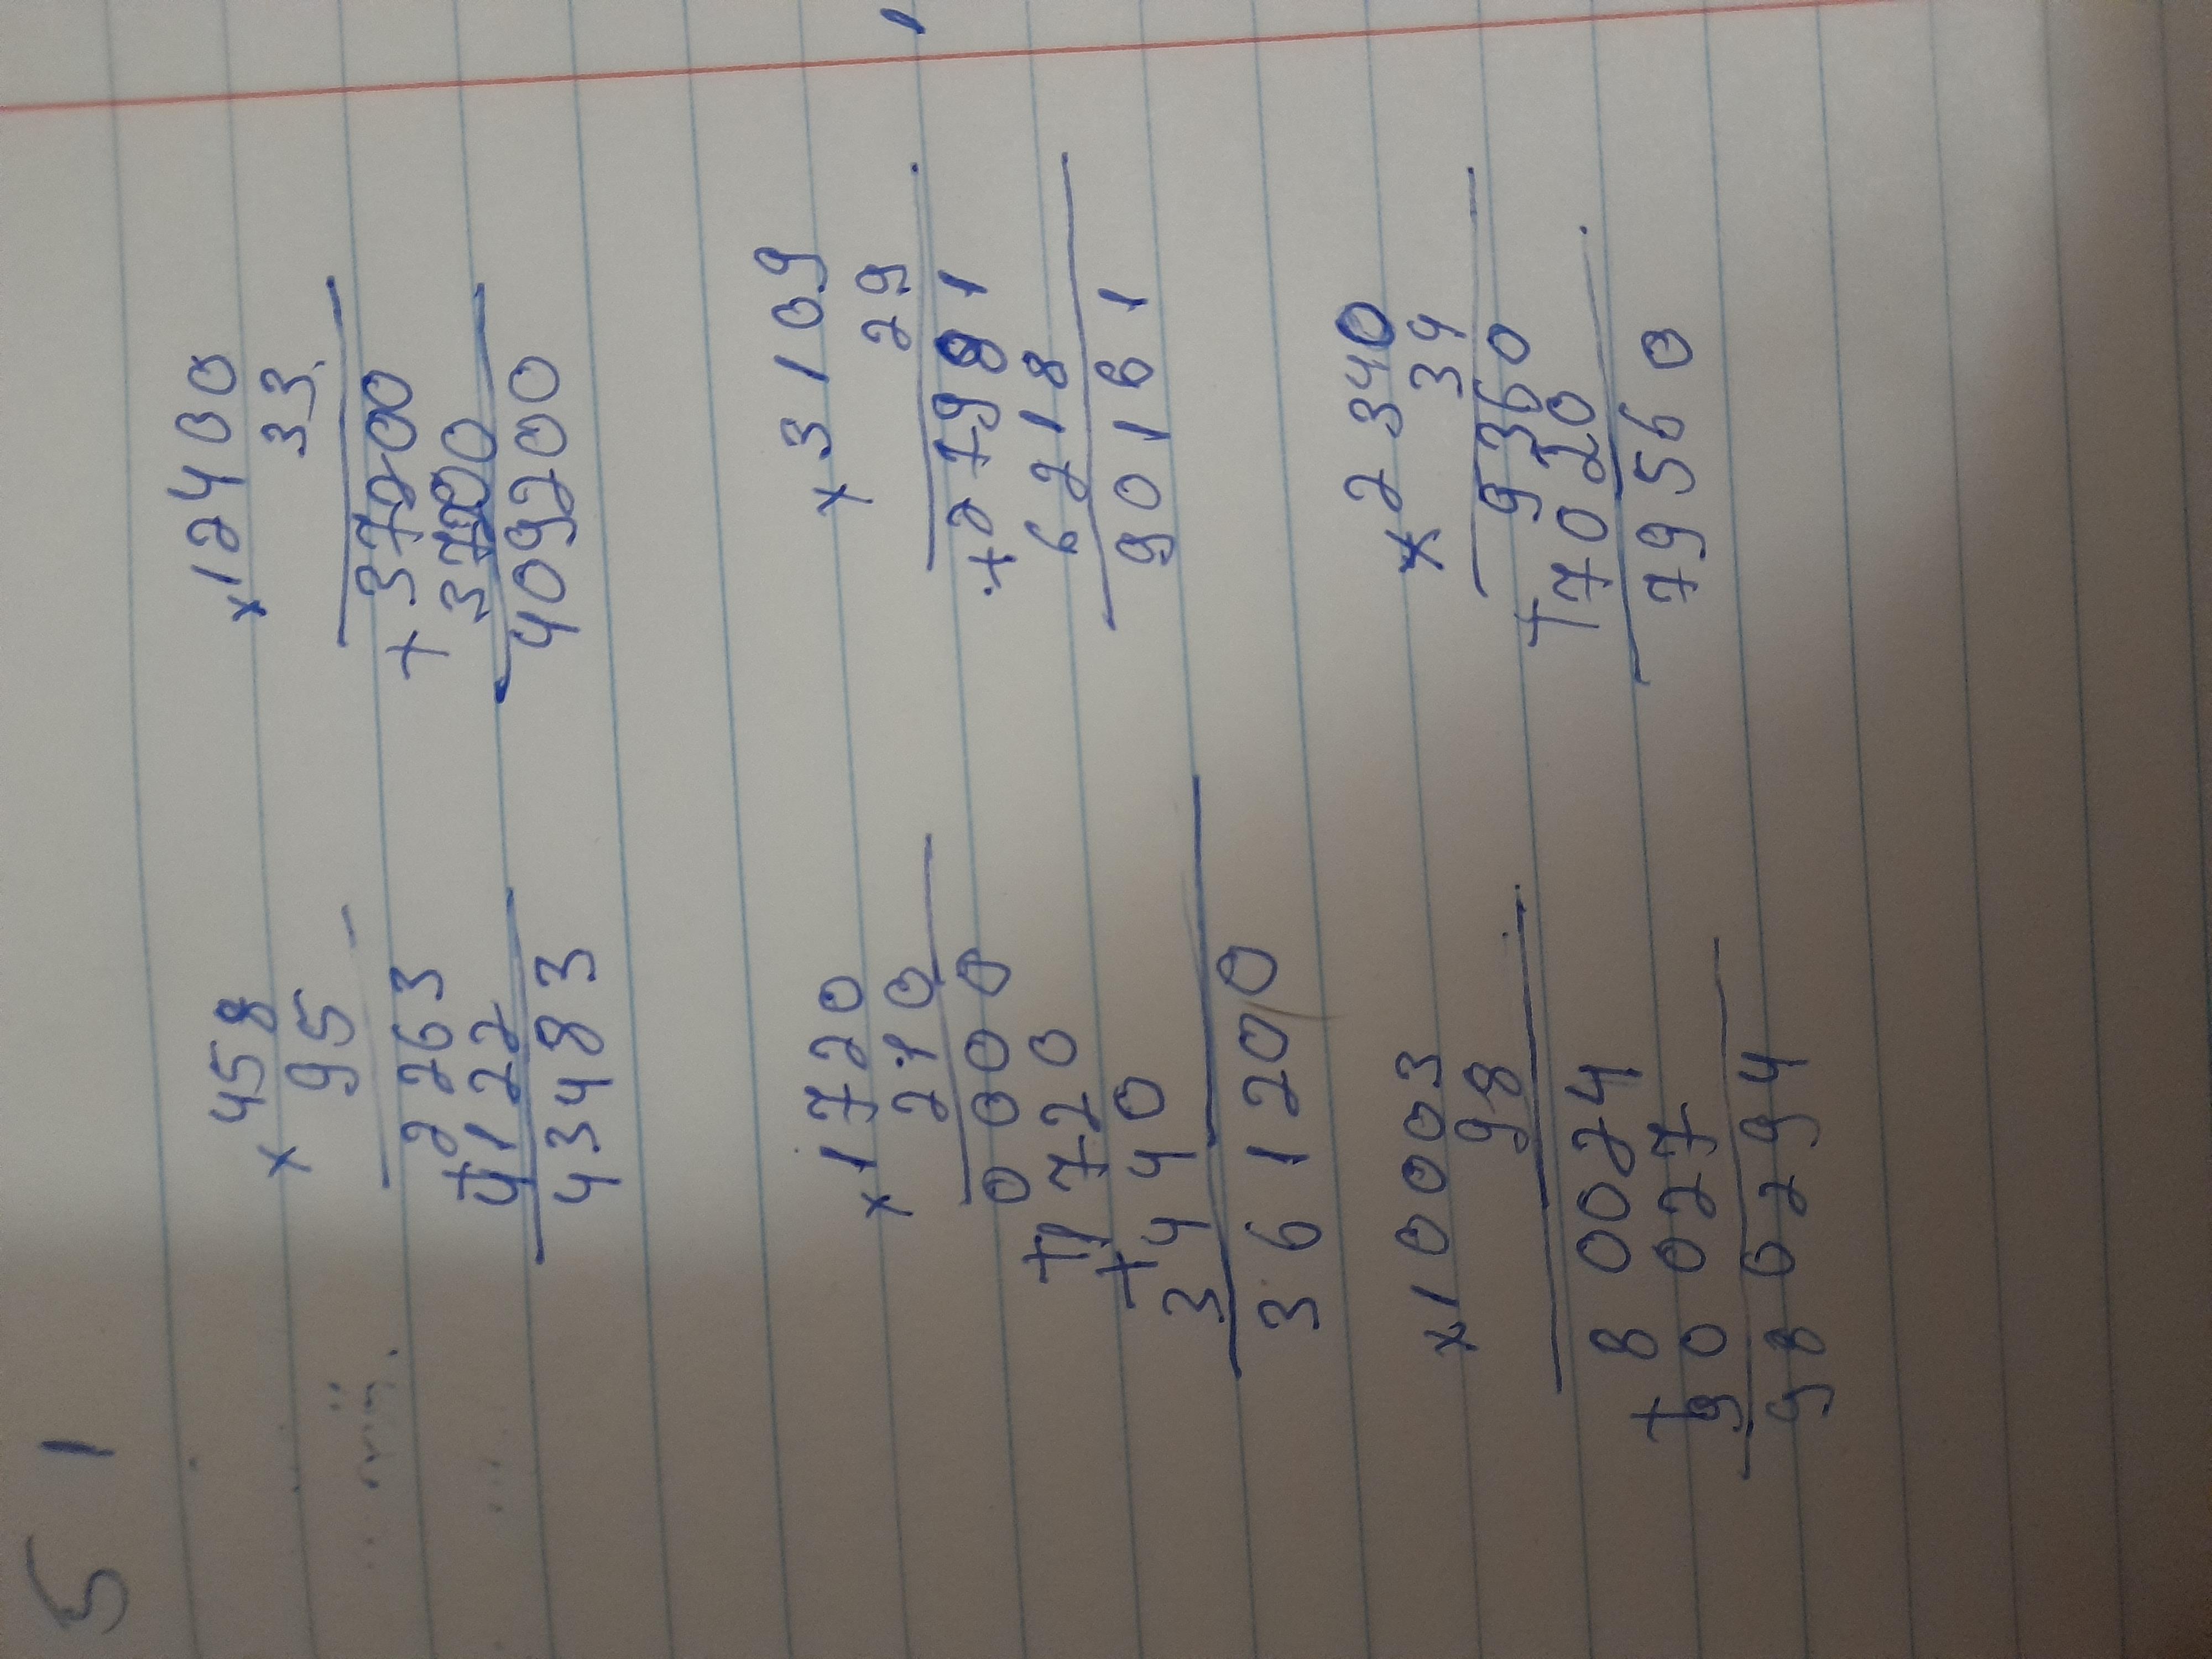 5 1
×458
95
2263
+4122
43483
×12400
33
37200
+37200
409200
×1720
210
0000
+1720
+3440
361200
×3109
29
27981
+6218
90161
×10003
98
80024
+90027
980294
×2340
34
9360
+7020
79560